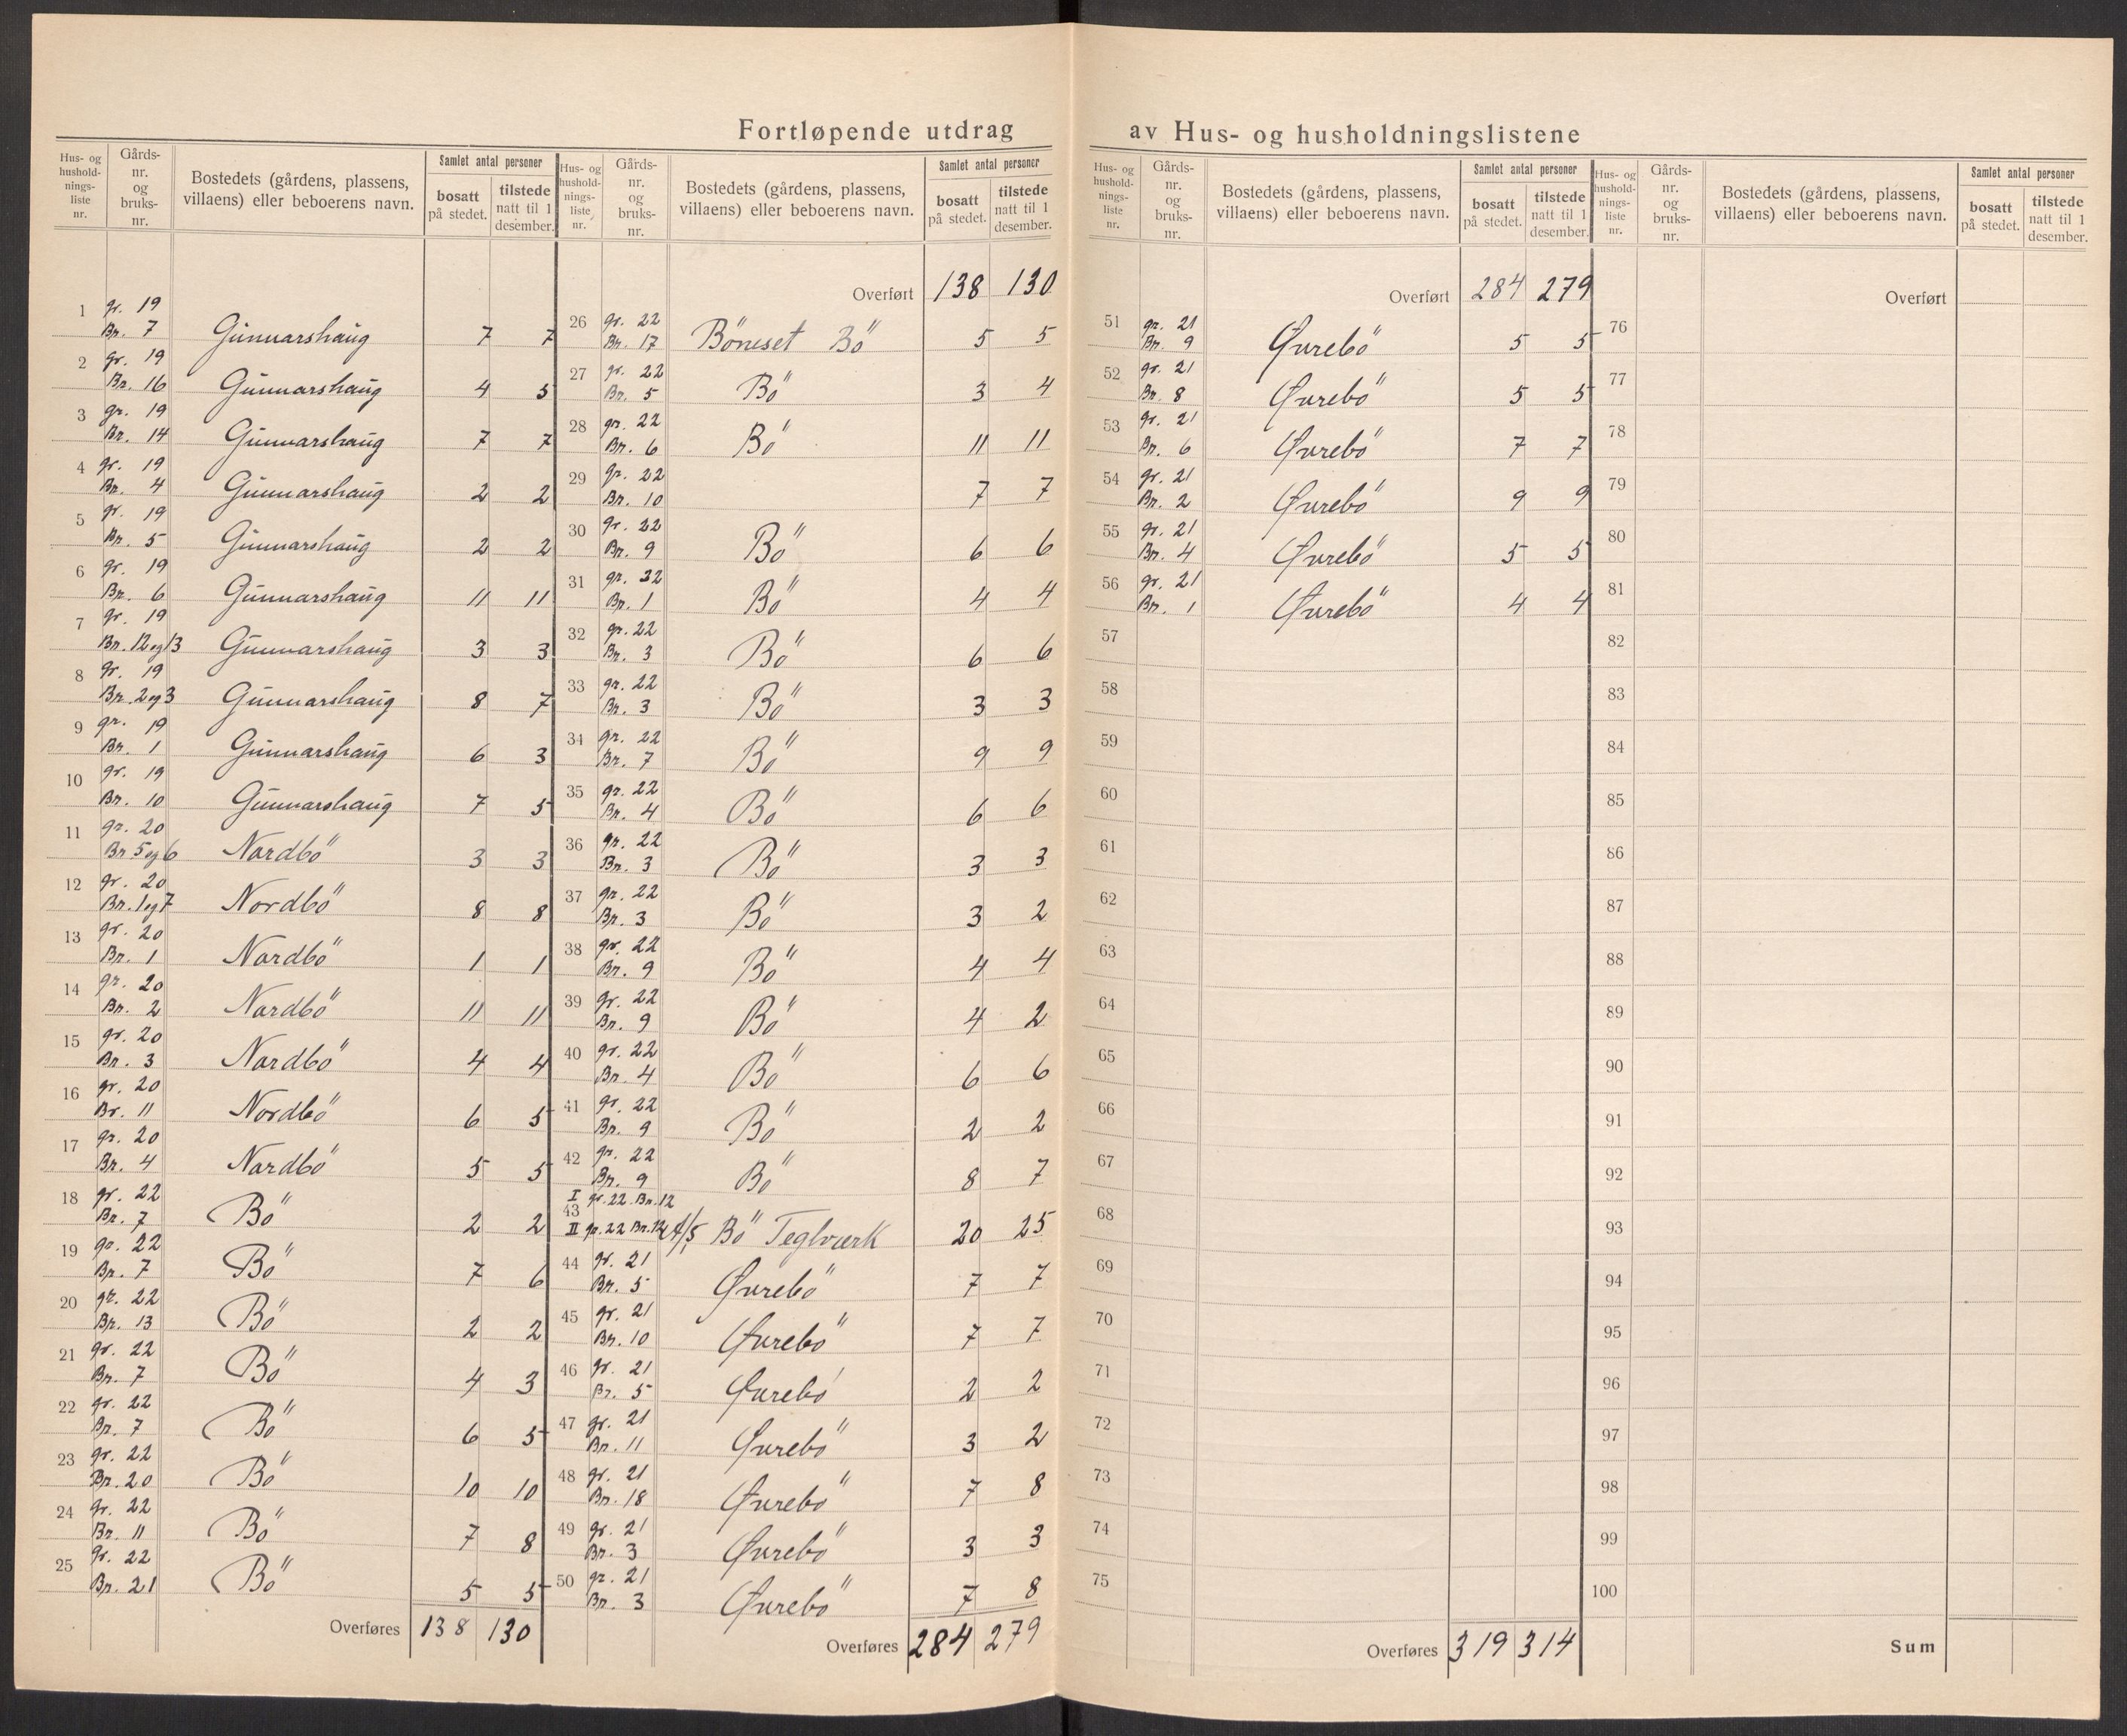 Fortløpende utdrag av Hus- og husholdningslistene
Hus- og hushold- nings- liste nr. | Gårds- nr. og bruks- nr. | Bostedets (gårdens, plassens, villaens) eller beboerens navn. | Samlet antal personer | bosatt på stedet. | tilstede natt til 1 desember.
1 gr. 19 Bn. 7 Gunnarshaug 7 7
2 gr. 19 Bn. 16 Gunnarshaug 4 5
3 gr. 19 Bn. 14 Gunnarshaug 7 7
4 gr. 19 Bn. 4 Gunnarshaug 2 2
5 gr. 19 Bn. 5 Gunnarshaug 2 2
6 gr. 19 Bn. 6 Gunnarshaug 11 11
7 gr. 19 Bn. 12 og 13 Gunnarshaug 3 3
8 gr. 19 Bn. 2 og 3 Gunnarshaug 8 7
9 gr. 19 Bn. 1 Gunnarshaug 6 3
10 gr. 19 Bn. 10 Gunnarshaug 7 5
11 gr. 20 Bn 5 og 6 Nordbö 3 3
12 gr. 20 Bn. 1 og 7 Nordbö 8 8
13 gr. 20 Bn. 1 Nordbö 1 1
14 gr. 20 Bn. 2 Nordbö 11 11
15 gr. 20 Bn. 3 Nordbö 4 4
16 gr. 20 Br. 11 Nordbö 6 5
17 gr. 20 Bn. 4 Nordbö 5 5
18 gr. 22 Bn. 7 Bö 2 2
19 gr. 22 Bn. 7 Bö 7 6
20 gr. 22 Bn. 13 Bö 2 2
21 gr. 22 Bn. 7 Bö 4 3
22 gr. 22 Bn. 7 Bö 6 5
23 gr. 22 Bn. 20 Bö 10 10
24 gr. 22 Bn. 11 Bö 7 8
25 gr. 22 Bn. 21 Bö 5 5
Overføres 138 130
Hus- og hushold- nings- liste nr. | Gårds- nr. og bruks- nr. | Bostedets (gårdens, plassens, villaens) eller beboerens navn. | Samlet antal personer | bosatt på stedet. | tilstede natt til 1 desember.
Overført 138 130
26 gr. 22 Bn. 17 Böneset Bö 5 5
27 gr. 22 Bn. 5 Bö 3 4
28 gr. 22 Bn. 6 Bö 11 11
29 gr. 22 Bn. 10 7 7
30 gr. 22 Bn. 9 Bö 6 6
31 gr. 22 Bn. 1 Bö 4 4
32 gr. 22 Bn. 3 Bö 6 6
33 gr. 22 Bn. 3 Bö 3 3
34 gr. 22 Bn. 7 Bö 9 9
35 gr. 22 Bn. 4 Bö 6 6
36 gr. 22 Bn. 3 Bö 3 3
37 gr. 22 Bn. 3 Bö 3 2
38 gr. 22 Bn. 9 Bö 4 4
39 gr. 22 Bn. 9 Bö 4 2
40 gr. 22 Bn. 4 Bö 6 6
41 gr. 22 Bn. 9 Bö 2 2
42 gr. 22 Bn. 9 Bö 8 7
I gr. 22 Bn. 12
43 II gr. 22 Bn. 12 A/S Bö Teglværk 20 25
44 gr. 21 Bn. 5 Øvrebö 7 7
45 gr. 21 Bn. 10 Øvrebö 7 7
46 gr. 21 Br. 5 Øvrebö 2 2
47 gr. 21 Bn. 11 Øvrebö 3 2
48 gr. 21 Bn. 18 Øvrebö 7 8
49 gr. 21 Bn. 3 Øvrebö 3 3
50 gr. 21 Bn. 3 Øvrebö 7 8
Overføres 284 279
Hus- og hushold- nings- liste nr. | Gårds- nr. og bruks- nr. | Bostedets (gårdens, plassens, villaens) eller beboerens navn. | Samlet antal personer | bosatt på stedet. | tilstede natt til 1 desember.
Overført 284 279
51 gr. 21 Bn. 9 Øvrebö 5 5
52 gr. 21 Bn. 8 Øvrebö 5 5
53 gr. 21 Bn. 6 Øvrebö 7 7
54 gr. 21 Bn. 2 Øvrebö 9 9
55 gr. 21 Bn. 4 Øvrebö 5 5
56 gr. 21 Bn. 1 Øvrebö 4 4
57
58
59
60
61
62
63
64
65
66
67
68
69
70
71
72
73
74
75
Overføres 319 314
Hus- og hushold- nings- liste nr. | Gårds- nr. og bruks- nr. | Bostedets (gårdens, plassens, villaens) eller beboerens navn. | Samlet antal personer | bosatt på stedet. | tilstede natt til 1 desember.
Overført
76
77
78
79
80
81
82
83
84
85
86
87
88
89
90
91
92
93
94
95
96
97
98
99
100
Sum